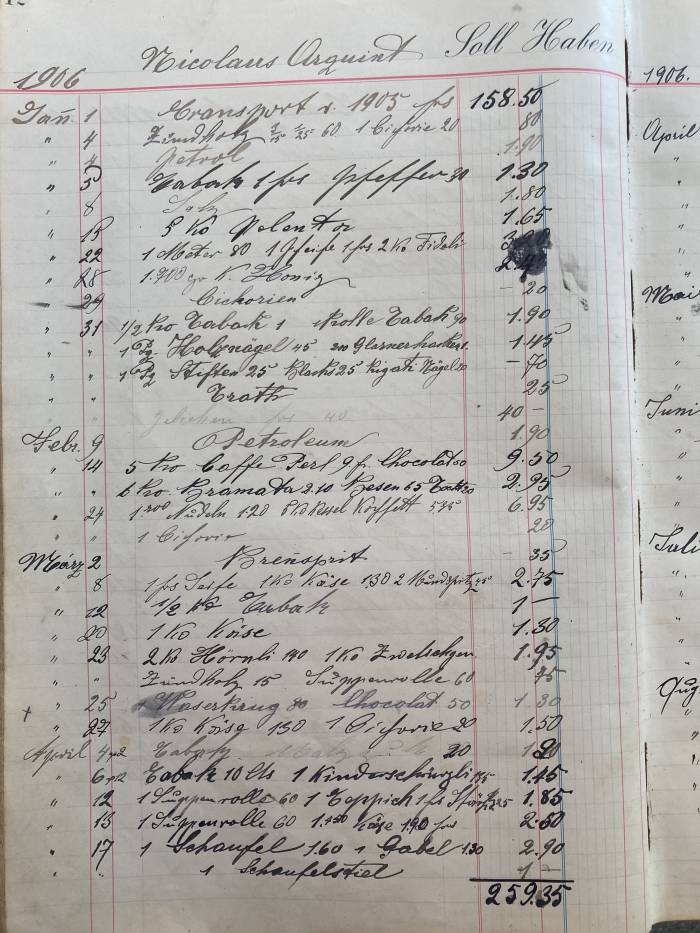 Nicolaus Arquint Soll Haben
1906
Jañ. 1 Transport v. 1905 frs 158.50
" 4 Zündholz 60 1 Cicorie 20 80
" 4 Petrol 1.90
" 5 Tabak 1 frs Pfeffer 30 1.30
" 8 Salz 1.80
" 15 5 Ko Polenta 1.65
" 22 1 Meter 80 1 Pfeife 1 frs 2 Ko Fideli
" 28 1.700 gr K. Honig
" 29 Cichorien - 20
" 31 1/2 Kro Tabak 1 Rolle Tabak 90 1.90
" " 1 Pg. Holznägel 45 1.45
" " 1 Pg Stiften 25 Blacks 25 Rigati Nägel 20 - 70
" " Trath 25
" " geliehen frs 40 40 -
Febr. 9 Petroleum 1.90
" 14 5 Kro Caffe Perl 9 fr. Chocolat 50 9.50
" " 6 Kro. Bramata 2.10 Besen 65 2.95
" 24 Nudeln 120 Kochfett 575 6.95
" " 1 Cicorie 20
März 2 Breñsprit - 35
" 8 1 frs Seife 1 Ko Käse 1.30 2 Mundspitz 45 2.75
" 12 1/2 Ko Tabak 1 -
" 20 1 Ko Käse 1.30
" 23 2 Ko Hörnli 140 1 Ko Zwetschgen 1.95
" " Zündholz 15 Suppenrolle 60 75
" 25 Waserkrug 80 Chocolat 50 1.30
+ " 27 1 Ko Käse 130 1 Cicorie 20 1.50
April 4 Tabak 20
" 6 Tabak 10 Cts 1 Kinderschürzli 1.45
" 12 1 Suppenrolle 60 1 Teppich 1 frs 1.85
" 13 1 Suppenrolle 60 Käse 190 2.50
" 17 1 Schaufel 160 1 Gabel 1.30 2.90
" " 1 Schaufelstiel 1 -
259.35
1906.
April
"
"
"
Mai
"
"
Juni
"
"
Juli
"
"
Aug
"